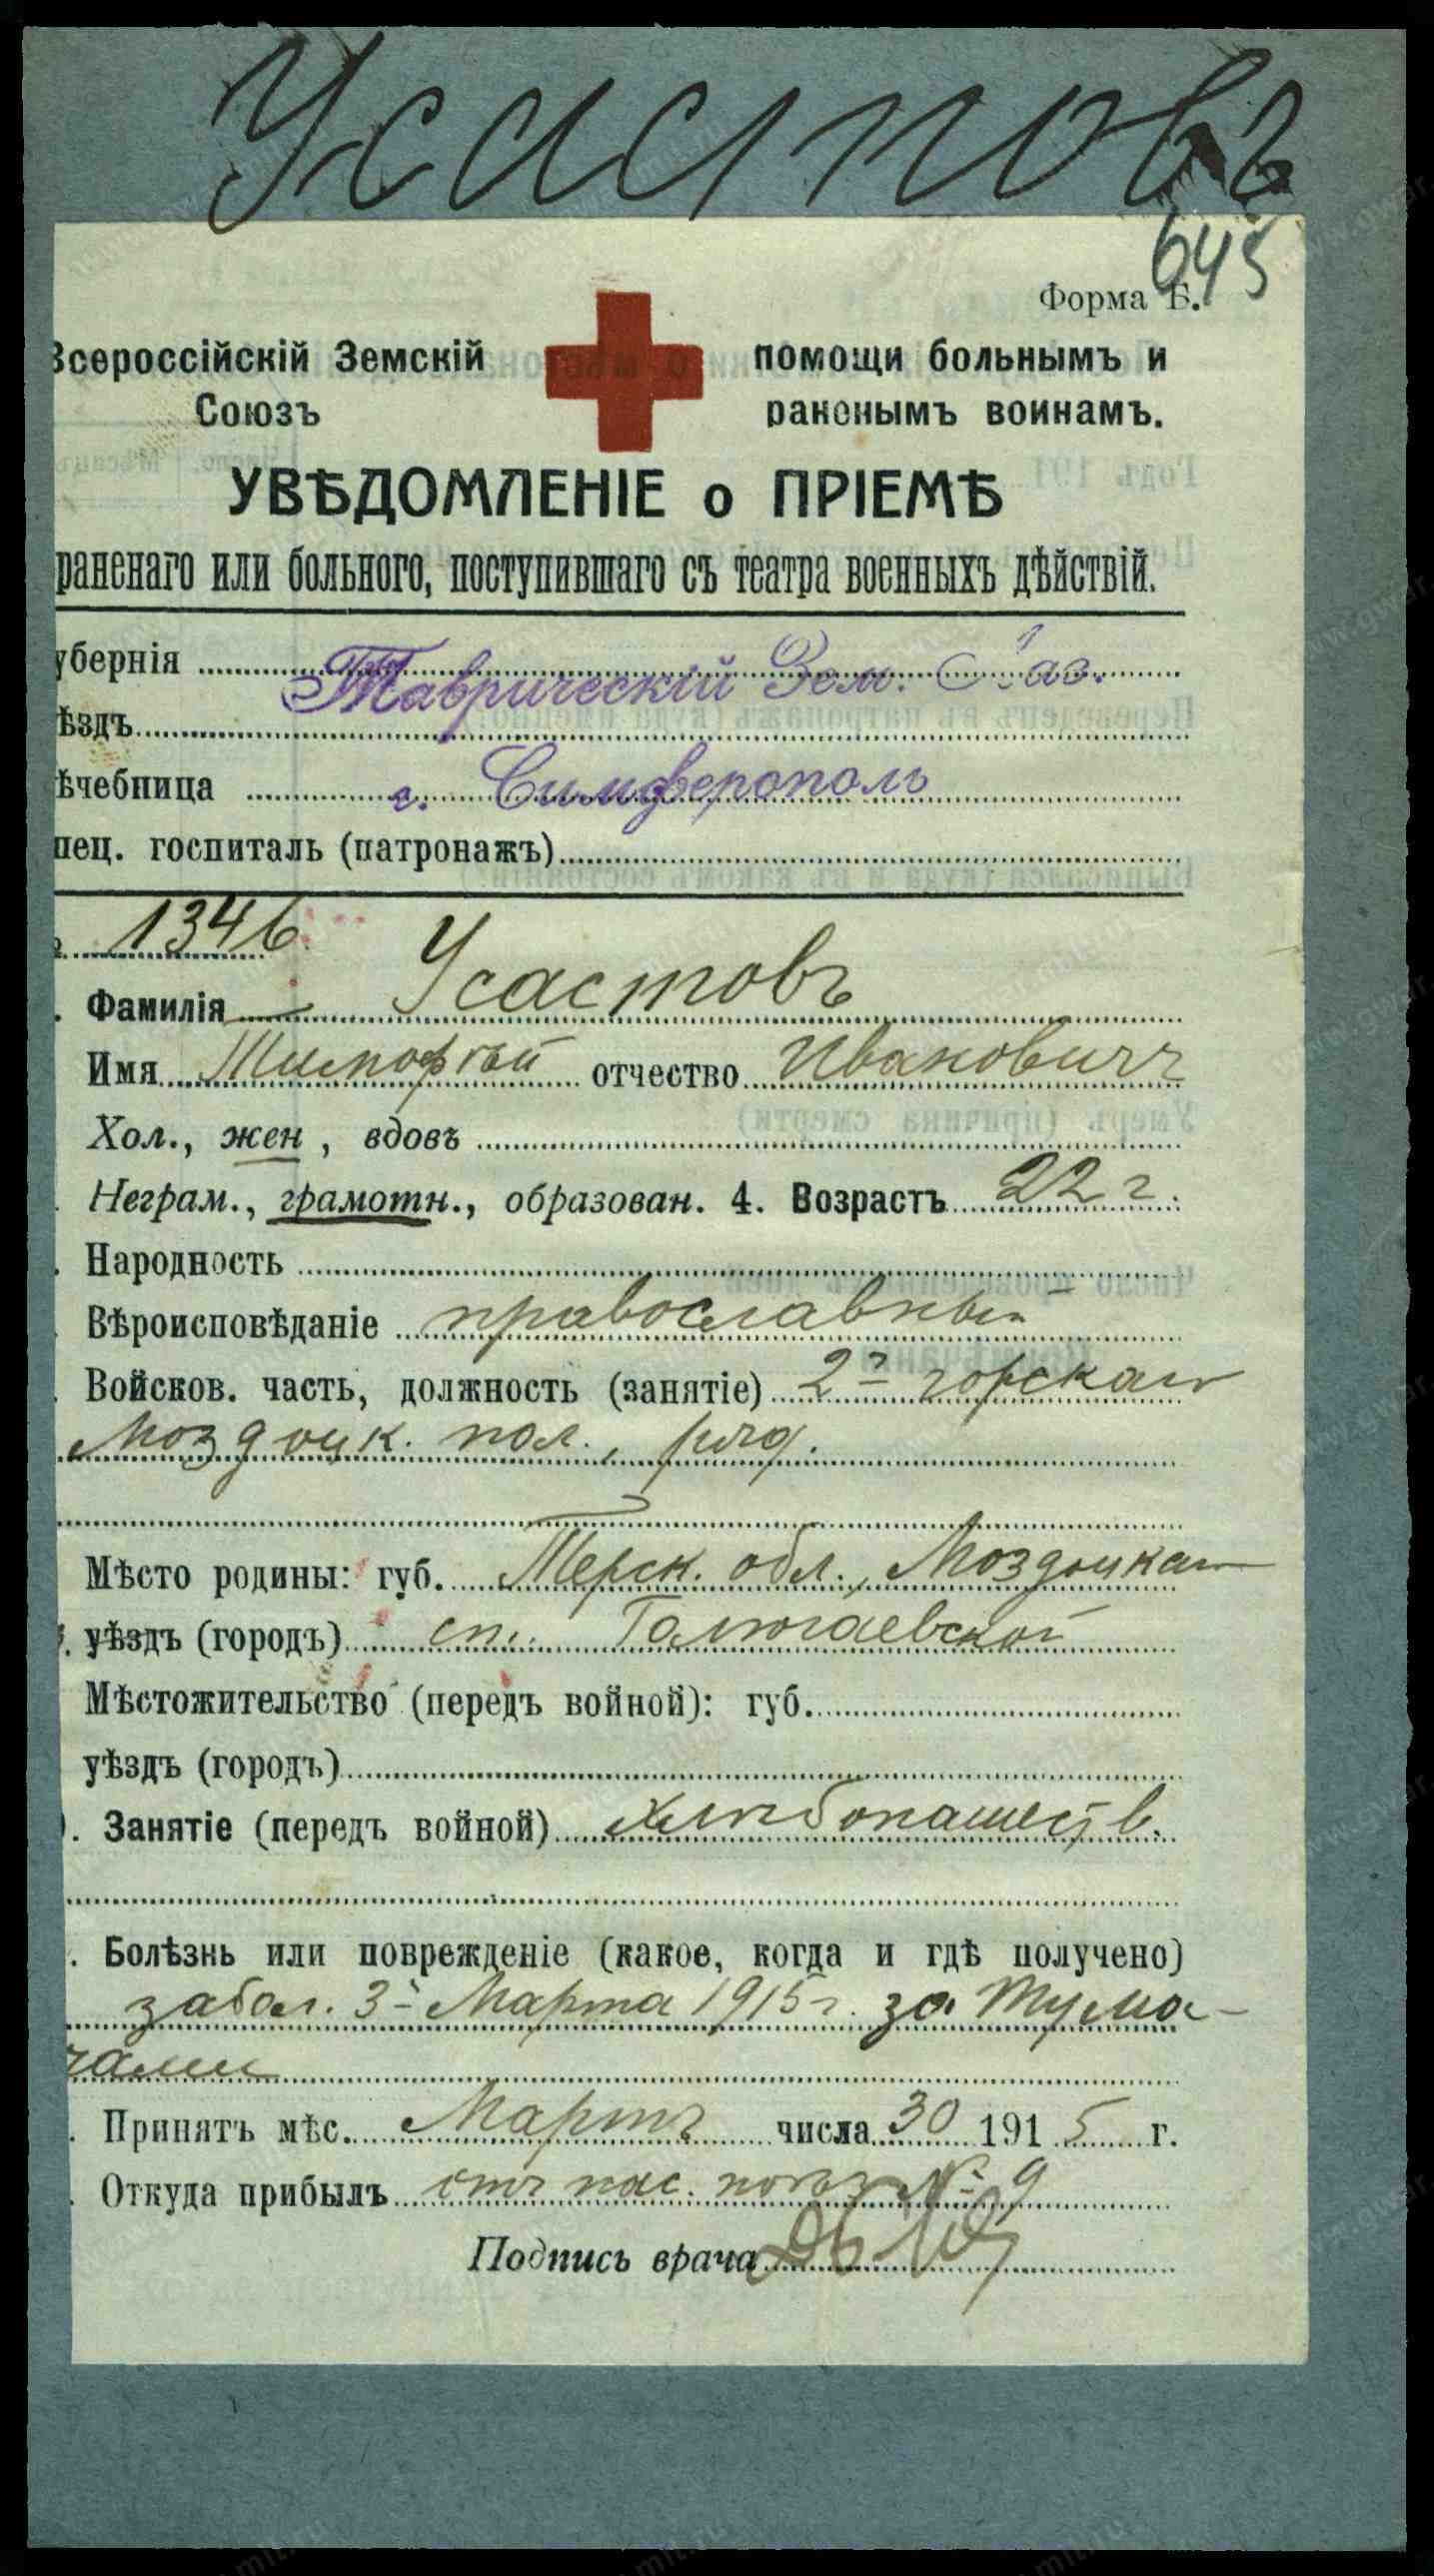 Усаповъ
645
Форма Б.
Всероссійскій Земскій помощи больнымъ и
Союзъ раненымъ воинамъ.
УВѢДОМЛЕНІЕ о ПРІЕМѢ
раненаго или больного, поступившаго съ театра военныхъ дѣйствій.
убернія Таврическій Зем.
ѣздъ
ѣчебница г. Симферополь
пец. госпиталь (патронажъ)
1346
Фамилія Усастовъ
Имя Тимофѣй отчество Ивановичъ
Хол., жен , вдовъ
Неграм., грамотн., образован. 4. Возрастъ 22 г.
Народность
Вѣроисповѣданіе православный
Войсков. часть, должность (занятіе) 2й горскаго
Моздоцк. пол., ряд.
Мѣсто родины: губ. Терск. обл., Моздоцкаго
уѣздъ (городъ) ст. Галюгаевской
Мѣстожительство (передъ войной): губ.
уѣздъ (городъ)
). Занятіе (передъ войной) хлѣбопашеств.
. Болѣзнь или поврежденіе (какое, когда и гдѣ получено)
забол. 3й Марта 1915 г. за Тума-
чами
. Принятъ мѣс. Мартъ числа 30 1915 г.
. Откуда прибылъ отъ пас. поѣз № 9
Подпись врача